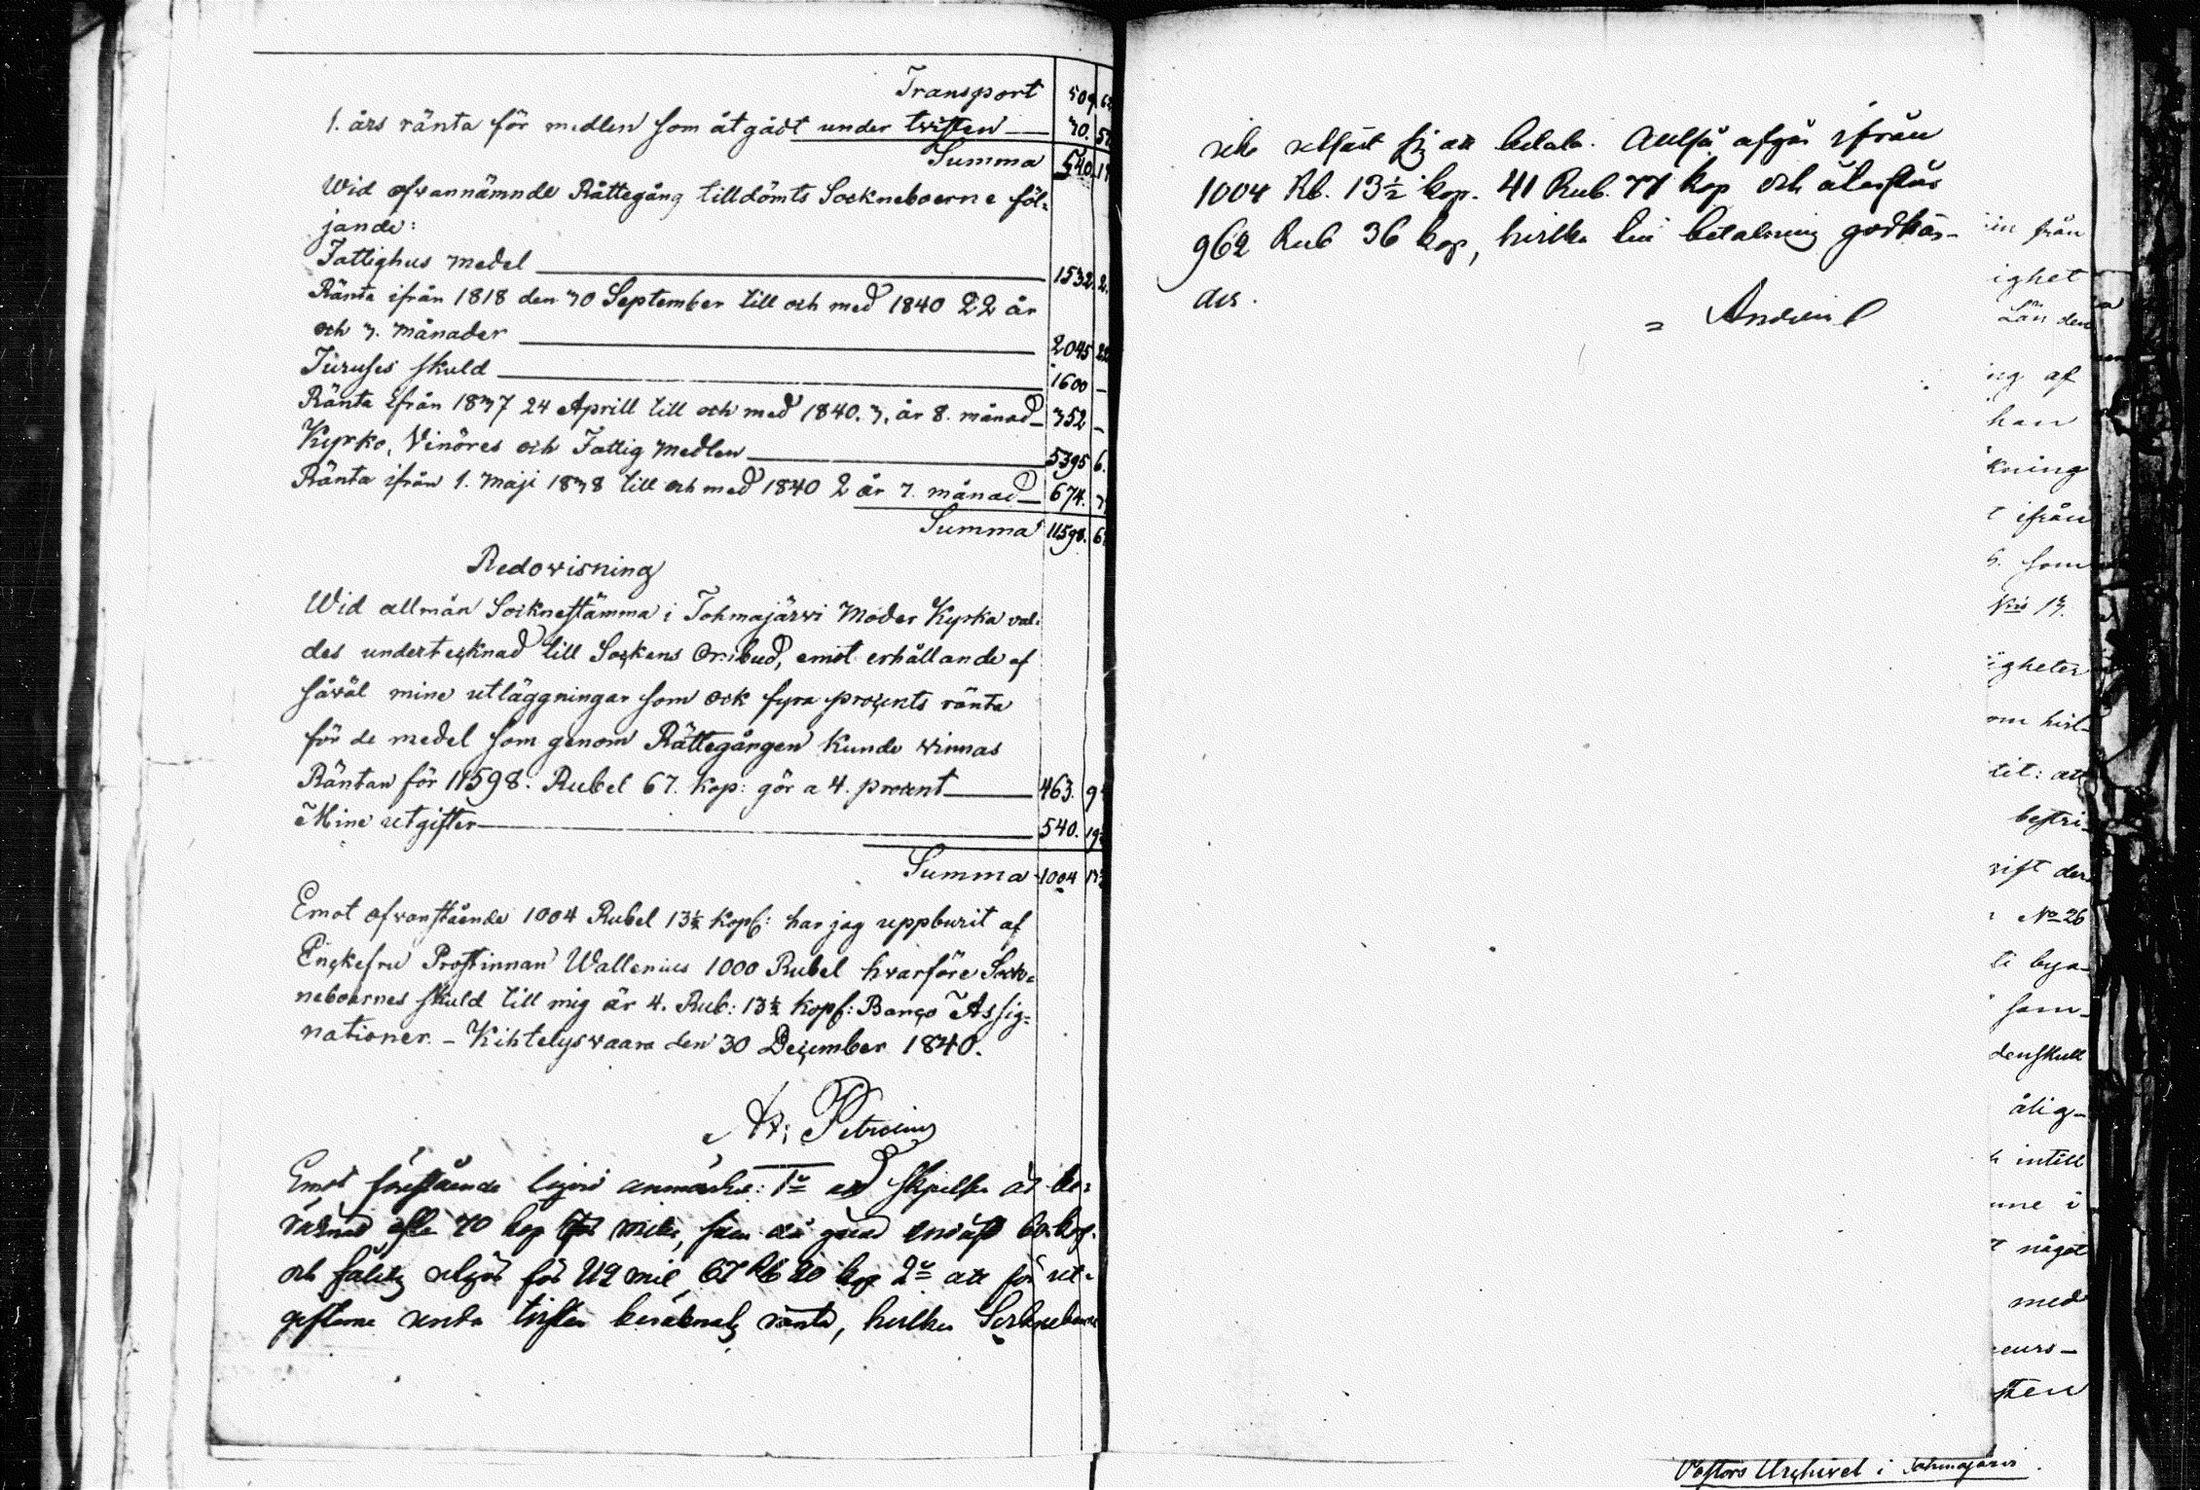 Transport 509.
1. års ränta för medlen som åtgådt under twisten 30.
Summa 540.
Wid ofvannämnde Rättegång tilldömts Sockneboerne föl-
jande:
Fattighus medel 1532.
Ränta ifrån 1818 den 30 September till och med 1840 22 år
och 3. månader 2045
skuld 1600 –
Ränta ifrån 1837 24 Aprill till och med 1840. 3. år 8. månad 352 –
Kyrko, och Fattig medlen 5395 6.
Ränta ifrån 1. Maji 1838 till och med 1840 2 år 7. månad 674.
Summa 11598.
Redovisning
Wid allmän Socknestämma i Tohmajärwi Moder Kyrka val-
des undertecknad till Sockens Ombud, emot erhållande af
såwäl mine utläggningar som ock fyra procents ränta
för de medel som genom Rättegången kunde winnas
Räntan för 11598. Rubel 67. Kop: gör a 4. procent 463.
Mine utgifter 540.
Summa 1004
Emot ofvanstående 1004 Rubel 13½ Kop: har jag uppburit af
Enckefru Prostinnan Wallenius 1000 Rubel hvarföre Sock-
neboernes skuld till mig är 4. Rub: 13½ Kop: Banco Assig-
nationer. – Kihtelyswaara den 30 December 1840.
Petrelius
Emot förestående anmärkes: 1o att skjutsen är be-
räknad efter 70 kop mil, som då endast 60 kop.
och för 112 mil, 67 Rb 20 kop 2o att för ut-
gifterne under twisten beräknats ränta, hvilken Sockneboerne
icke utfäst sig att betala. Alltså afgår ifrån
1004 Rb. 13½ kop. 41 Rub. 77 kop och återstår
962 Rub 36 kop, hvilka till betalning godkän-
des.
från
ighet
Län den
ing af
han
kning
ifrån
som
No 13.
igheter
om hvil-
tit: att
bestri-
rift der
No 26
bya-
som-
denskull
ålig-
intill
nne i
något
med
eurs-
sten
Pastors Archivet i Tohmajärvi.